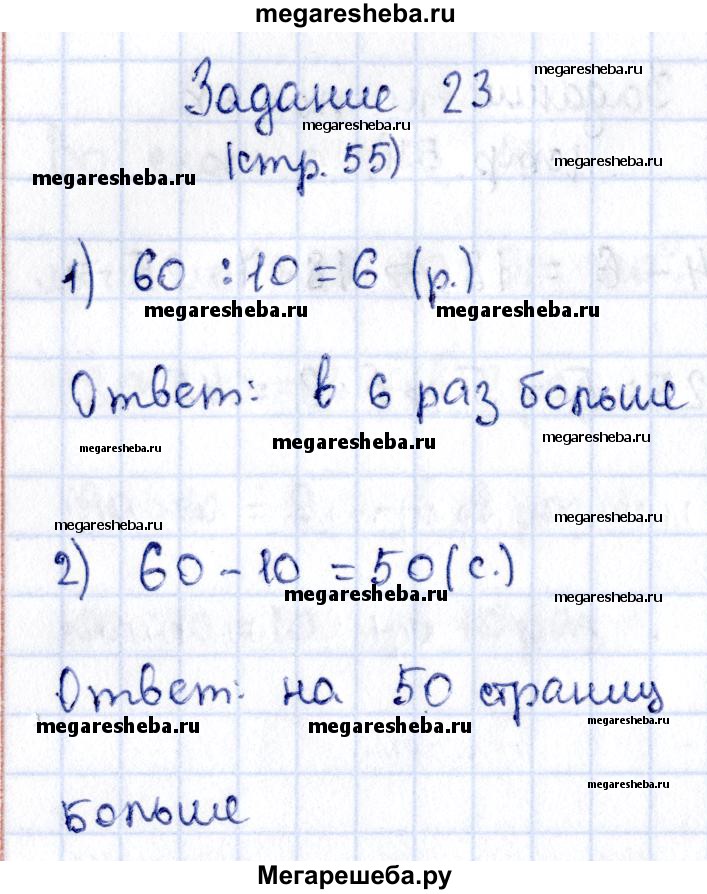 megaresheba.ru
Задание 23
megaresheba.ru
megaresheba.ru
(стр. 55)
megaresheba.ru
megaresheba.ru
1) 60 : 10 = 6 (р.)
megaresheba.ru megaresheba.ru
Ответ: в 6 раз больше
megaresheba.ru megaresheba.ru megaresheba.ru
megaresheba.ru megaresheba.ru
2) 60 - 10 = 50 (с.)
megaresheba.ru megaresheba.ru
Ответ: на 50 страниц
megaresheba.ru megaresheba.ru megaresheba.ru
больше
megaresheba.ru
Мегарешеба.ру